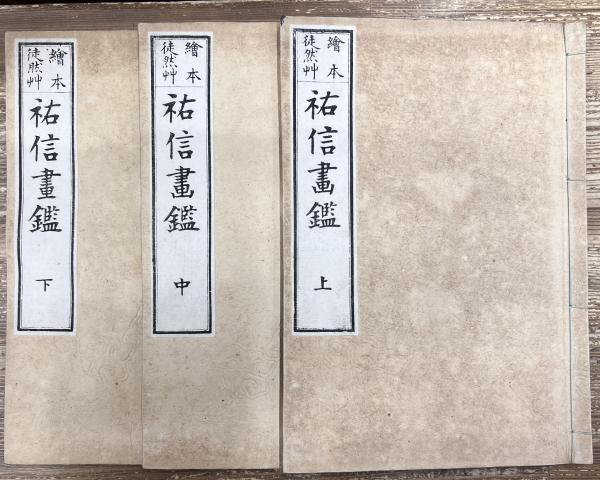 繪本
徒然艸
祐信畫鑑
上
繪本
徒然艸
祐信畫鑑
中
繪本
徒然艸
祐信畫鑑
下